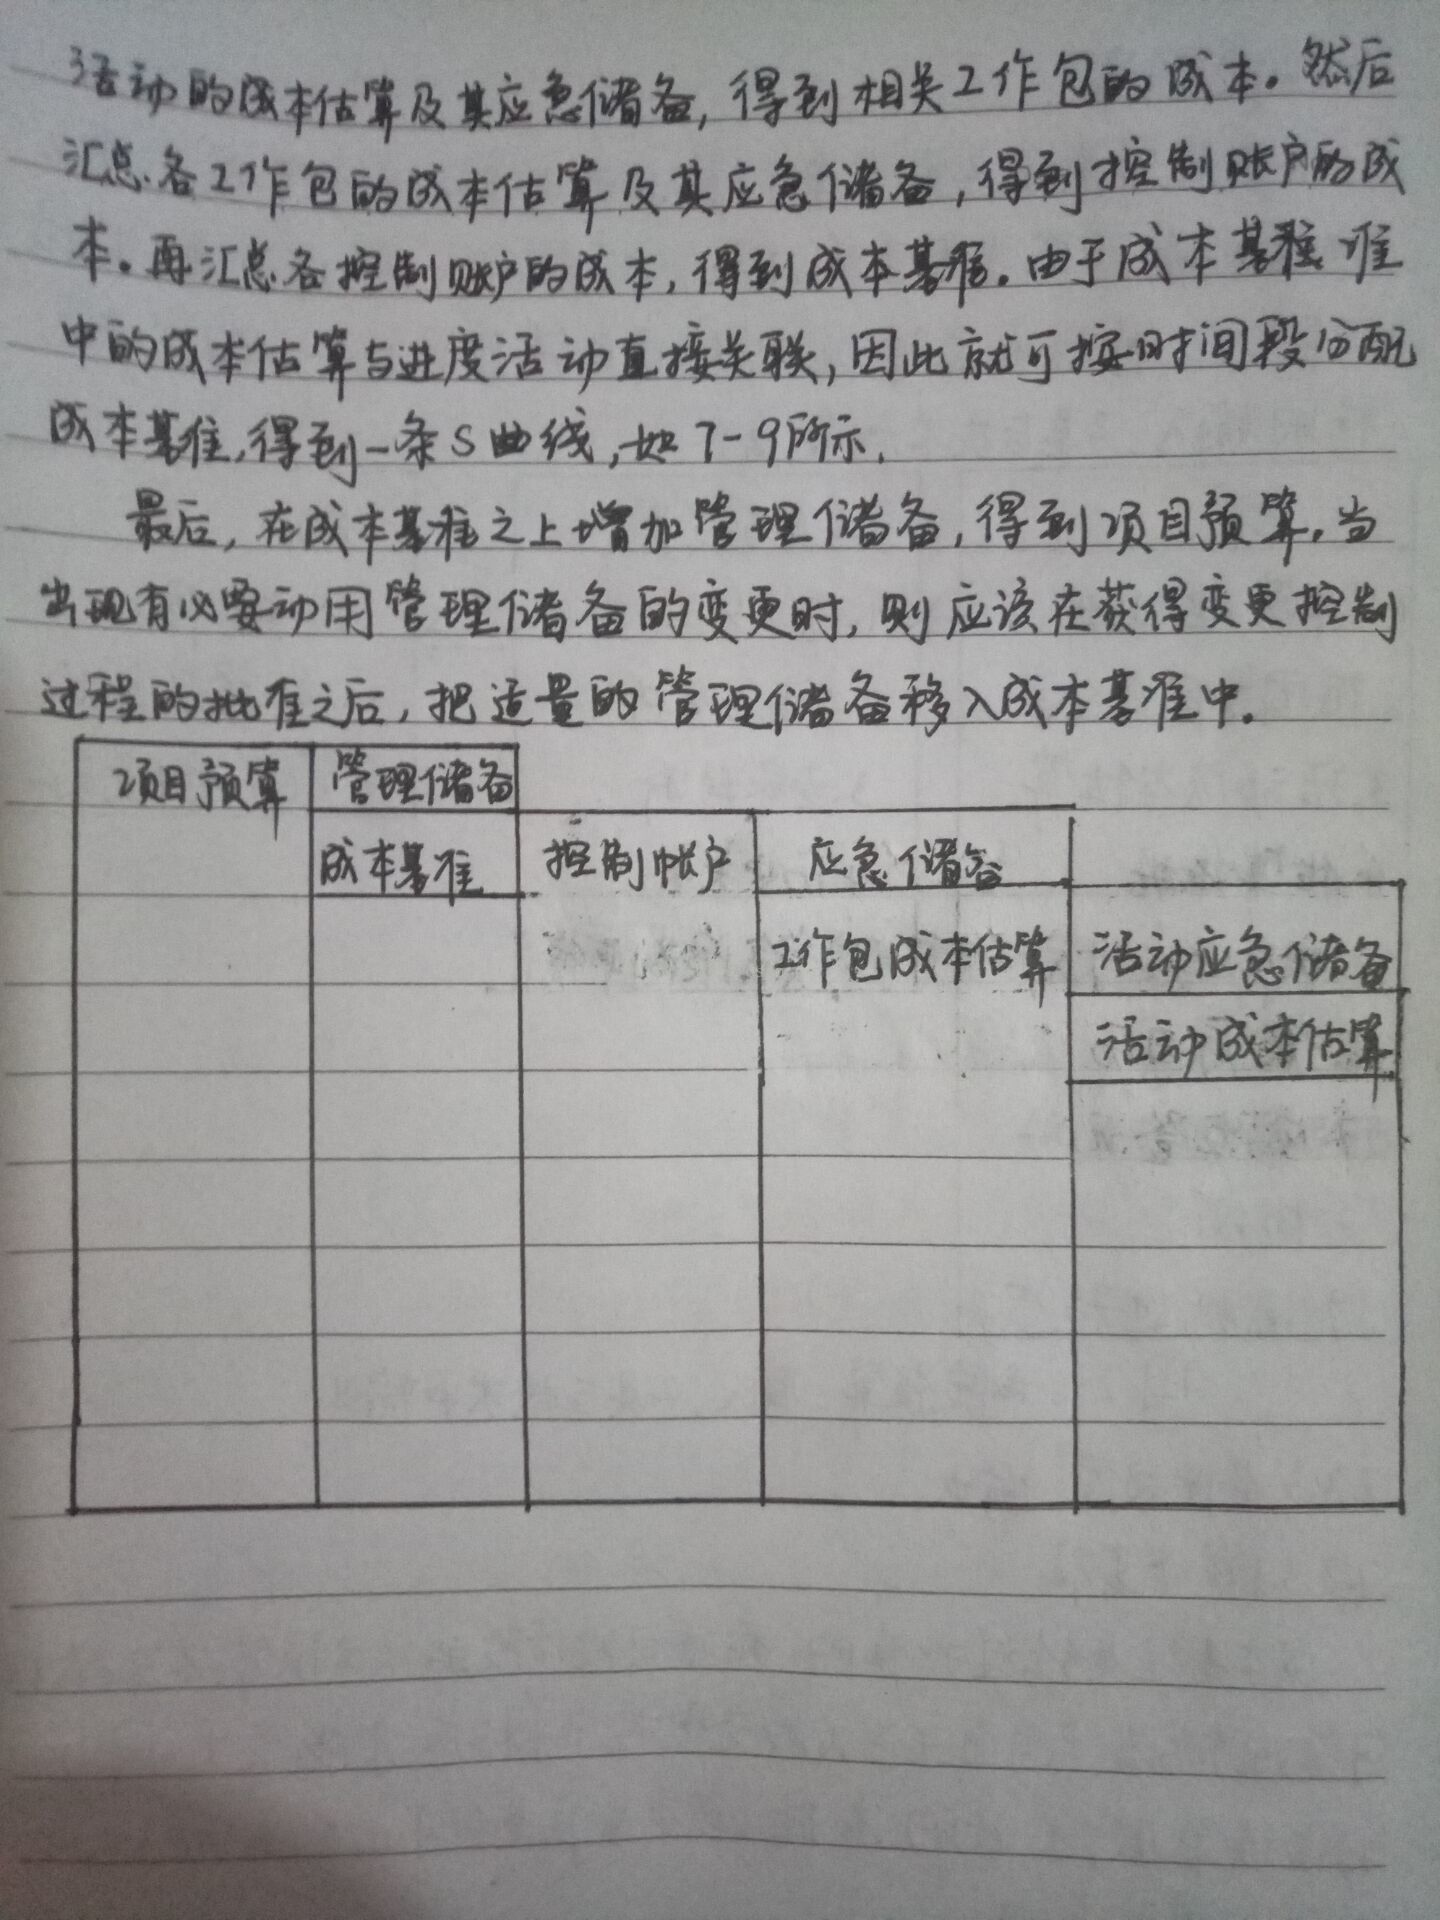 活动的成本估算及其应急储备，得到相关工作包的成本。然后
汇总各工作包的成本估算及其应急储备，得到控制账户的成
本。再汇总各控制账户的成本，得到成本基准。由于成本基准准
中的成本估算与进度活动直接关联，因此就可按时间段分配
成本基准，得到一条S曲线，如7-9所示.
最后，在成本基准之上增加管理储备，得到项目预算。当
出现有必要动用管理储备的变更时，则应该在获得变更控制
过程的批准之后，把适量的管理储备移入成本基准中.
项目预算 管理储备
成本基准 控制帐户 应急储备
工作包成本估算 活动应急储备
活动成本估算